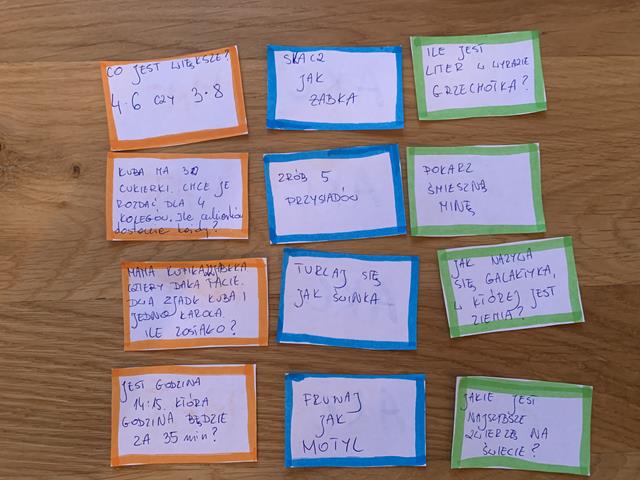 CO JEST WIĘKSZE?
4·6 CZY 3·8
SKACZ
JAK
ŻABKA
ILE JEST
LITER W WYRAZIE
GRZECHOTKA?
KUBA MA
CUKIERKI. CHCE JE
ROZDAĆ DLA 4
KOLEGÓW. Ile cukierków
dostanie każdy?
ZRÓB 5
PRZYSIADÓW
POKARZ
ŚMIESZNĄ
MINĘ
MAMA
CZTERY DAŁA TACIE.
DWA ZJADŁ KUBA I
JEDNO KAROLA.
ILE ZOSTAŁO?
TURLAJ SIĘ
JAK ŚWINKA
JAK NAZYWA
SIĘ GALAKTYKA,
W KTÓREJ JEST
ZIEMIA?
JEST GODZINA
14:15. KTÓRA
GODZINA BĘDZIE
ZA 35 min?
FRUWAJ
JAK
MOTYL
JAKIE JEST
NAJSZYBSZE
ZWIERZĘ NA
ŚWIECIE?